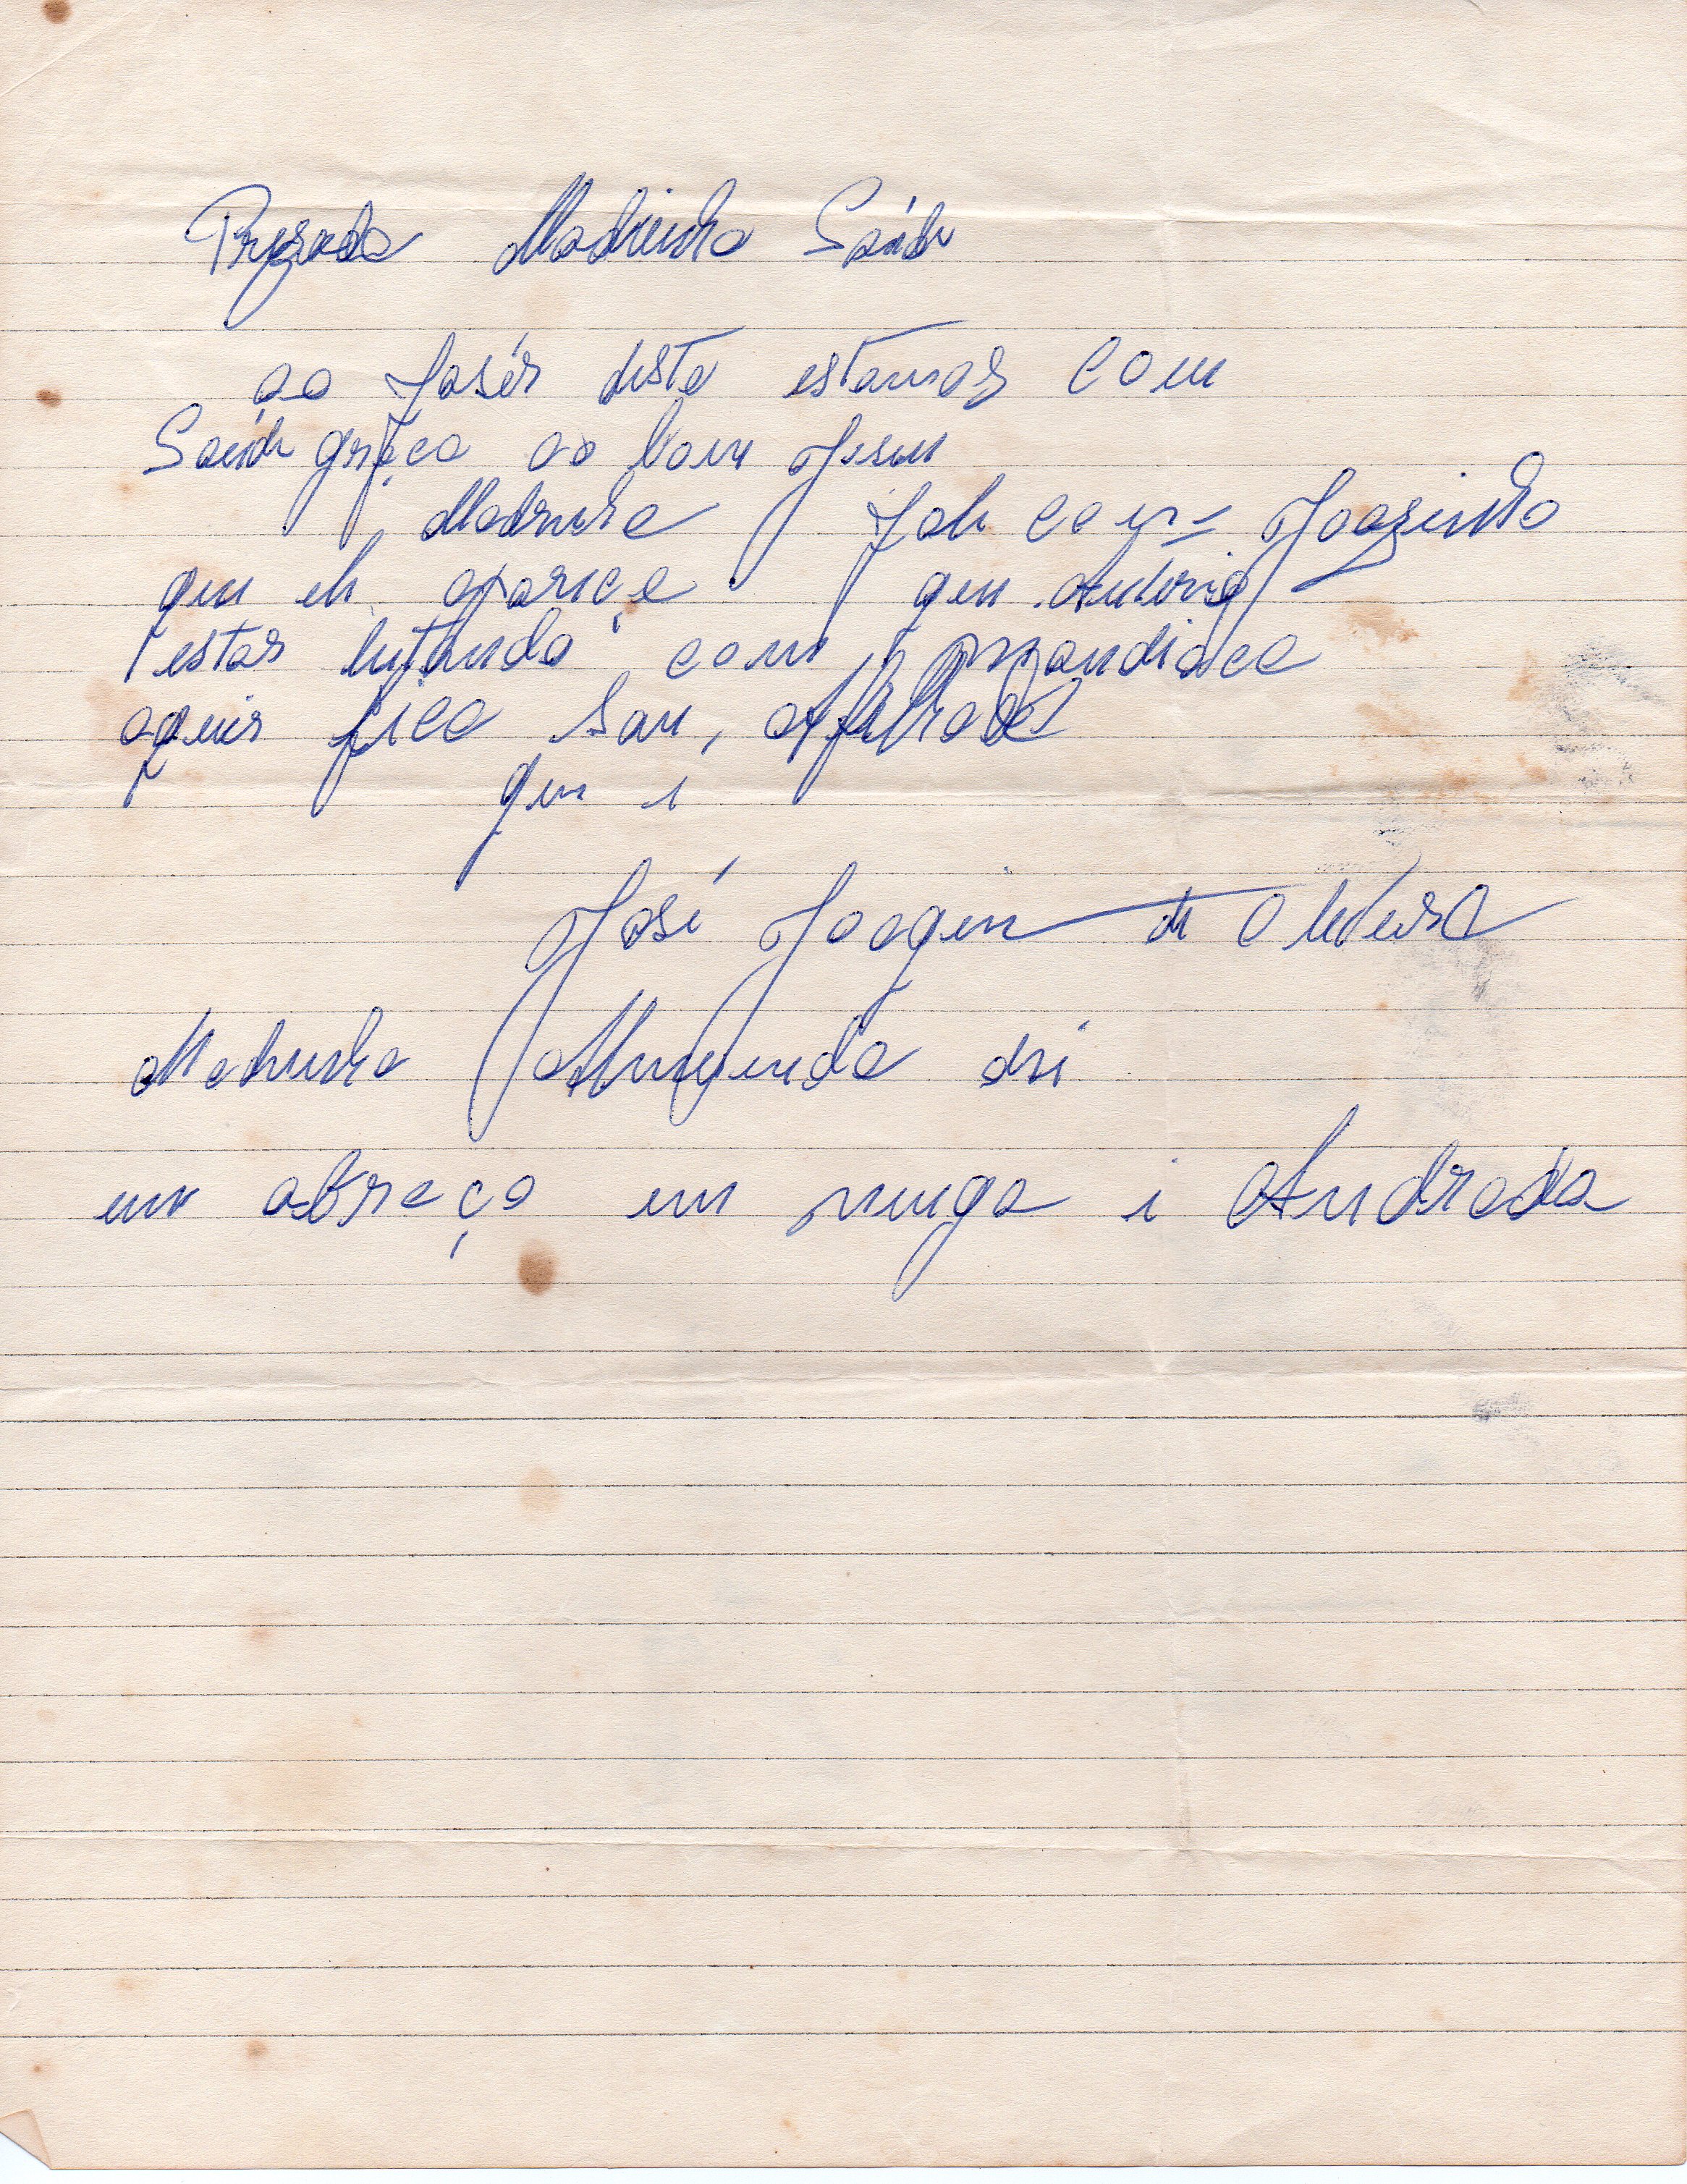 Prezada Madrinha Saúde
ao fasér deste estamos com
Saúde graça ao bom Jesus
Madrinha fale com Joazinho
que ele apareçe que Antonio
estar lutando com mandioca
aquir fica seu, Afilhado
que é
José Joaquin de Oliveira
Madrinha Almerinda dei
um abraço em e Andrada